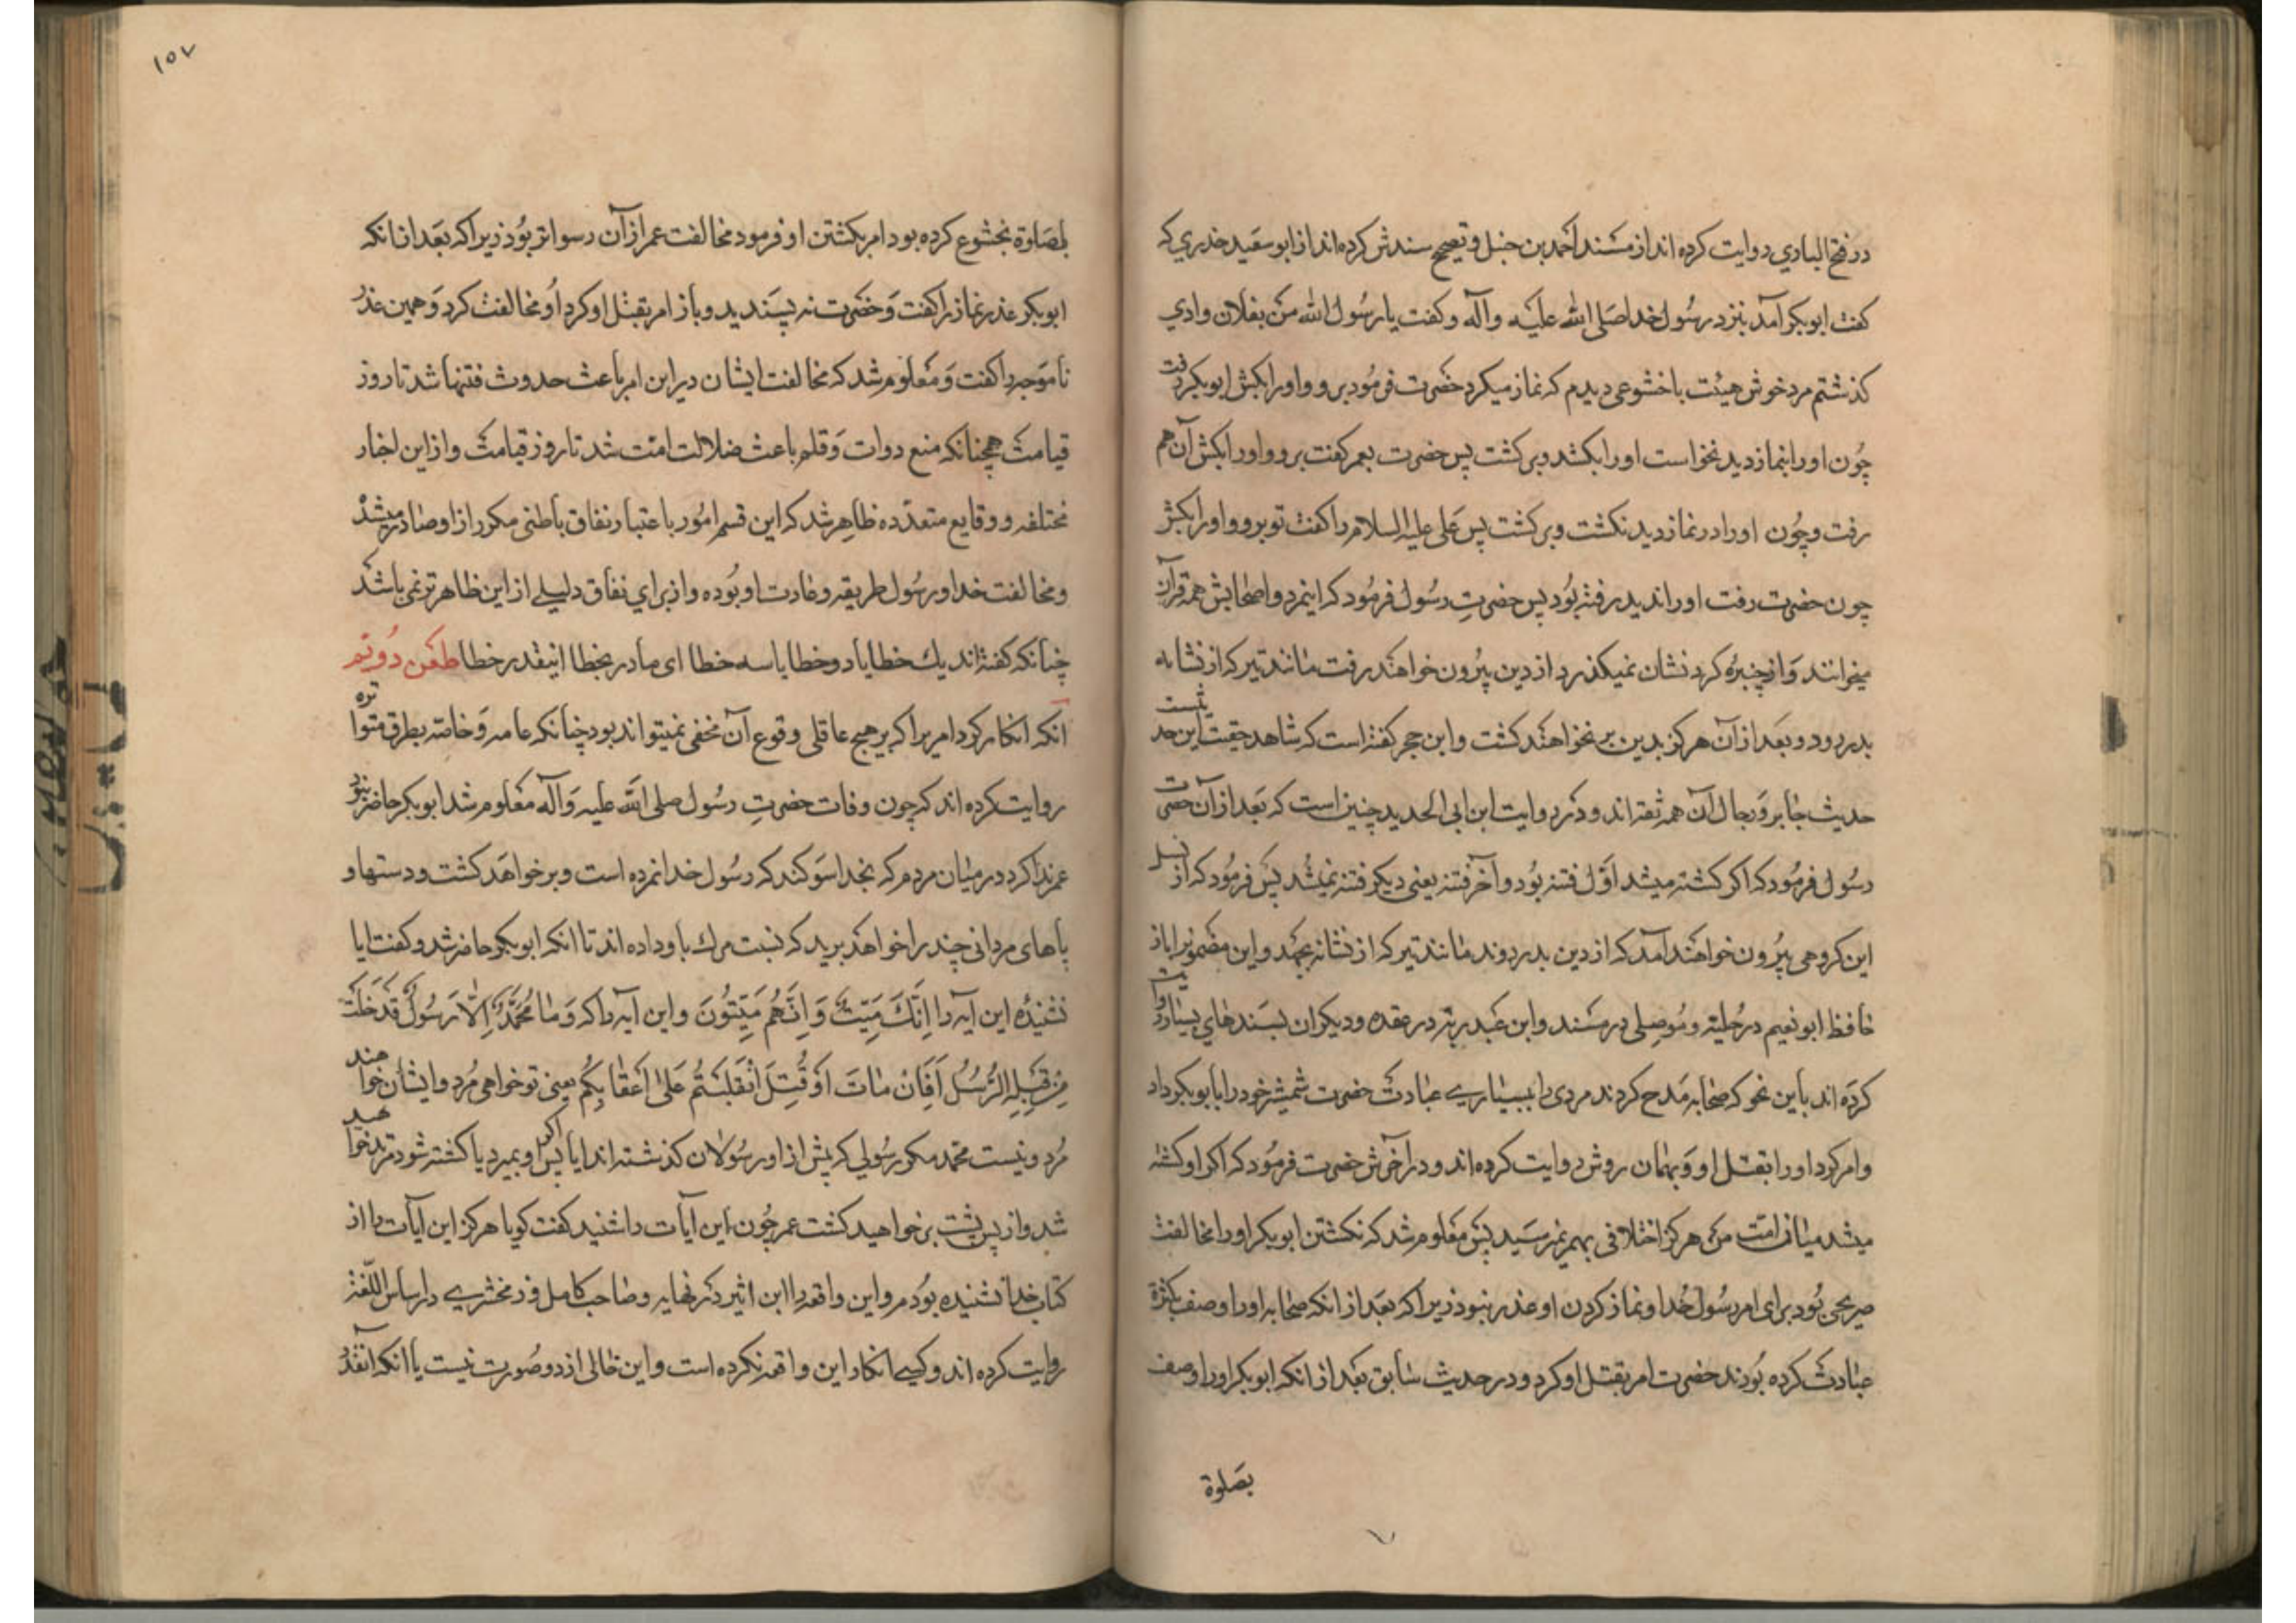 در فتح الباری روایت کرده‌اند از مسند احمد بن حنبل و تصحیح سندش کرده‌اند از ابو سعید خدری که
گفت ابوبکر آمد بنزد رسول خدا صلی الله علیه وآله و گفت یا رسول الله من بفلان وادی
گذشتم مرد خوش هیئت باخشوعی دیدم که نماز میکرد حضرت فرمود برو و او را بکش ابوبکر رفت
چون او را بنماز دید نخواست او را بکشد و برگشت پس حضرت بعمر گفت برو و او را بکش آن هم
رفت و چون او را در نماز دید نکشت و برگشت پس علی علیه السلام را گفت تو برو و او را بکش
چون حضرت رفت او را ندید رفته بود پس حضرت رسول فرمود که اینمرد و اصحابش همه قرآن
میخوانند و از چنبره کردنشان نمیگذرد از دین بیرون خواهند رفت مانند تیر که از نشانه
بدر رود و بعد از آن هرگز بدین بر نخواهند گشت و ابن حجر گفته است که شاهد حقیت این حدیثست
حدیث جابر و رجال آن همه ثقه‌اند و در روایت ابن ابی الحدید چنین است که بعد از آن حضرت
رسول فرمود که اگر کشته میشد اول فتنه بود و آخر فتنه یعنی دیگر فتنه نمیشد پس فرمود که از نسل
این گروهی بیرون خواهند آمد که از دین بدر روند مانند تیر که از نشانه بجهد و این مضمونرا باز
حافظ ابو نعیم در حلیه و موصلی در مسند و ابن عبد ربه در عقد و دیگران بسندهای بسیار روایت
کرده‌اند باین نحو که صحابه مدح کردند مردی را ببسیاری عبادت حضرت شمشیر خود را بابوبکر داد
و امر کرد او را بقتل او و بهمان روش روایت کرده‌اند و در آخرش حضرت فرمود که اگر او کشته
میشد میان امت من هرگز اختلافی بهم نمیرسید پس معلوم شد که نکشتن ابوبکر او را مخالفت
صریحی بود برای امر رسول خدا و نماز کردن او عذر نبود زیرا که بعد از انکه صحابه او را وصف بکثرة
عبادت کرده بودند حضرت امر بقتل او کرد و در حدیث سابق بعد از انکه ابوبکر او را وصف
بصلوة
۱۵۷
بصلوة بخشوع کرده بود امر بکشتن او فرمود مخالفت عمر از آن رسواتر بود زیرا که بعد از انکه
ابوبکر عذر نماز را گفت و حضرت نه پسندید و باز امر بقتل او کرد او مخالفت کرد و همین عذر
ناموجه را گفت و معلوم شد که مخالفت ایشان در این امر باعث حدوث فتنها شد تا روز
قیامت همچنانکه منع دوات و قلم باعث ضلالت امت شد تا روز قیامت و از این اخبار
مختلفه و وقایع متعدده ظاهر شد که این قسم امور باعتبار نفاق باطنی مکرر از او صادر میشد
و مخالفت خدا و رسول طریقه و عادت او بوده و از برای نفاق دلیلی از این ظاهرتر نمی‌باشد
چنانکه گفته‌اند یك خطا یا دو خطا یا سه خطا ای مادر بخطا اینقدر خطا طعن دویم
انکه انکار کرد امریرا که بر هیچ عاقلی وقوع آن مخفی نمیتواند بود چنانکه عامه و خاصه بطرق متواتره
روایت کرده‌اند که چون وفات حضرت رسول صلی الله علیه وآله معلوم شد ابوبکر حاضر نبود
عمر ندا کرد در میان مردم که بخدا سوکند که رسول خدا نمرده است و بر خواهد گشت و دستها و
پاهای مردانی چند را خواهد برید که نسبت مرك باو داده‌اند تا انکه ابوبکر حاضر شد و گفت ایا
نشنیدهٔ این آیه را اِنَّكَ مَیِّتٌ وَ اِنَّهُم مَیِّتُونَ و این آیه را که وَمَا مُحَمَّدٌ اِلّا رَسُولٌ قَدخَلَت
مِن قَبلِهِ الرُّسُلُ اَفَاِن مَاتَ اَو قُتِلَ انقَلَبتُم عَلی اَعقَابِکُم یعنی تو خواهی مرد و ایشان خواهند
مرد و نیست محمد مکر رسولی که پیش از او رسولان گذشته‌اند ایا پس اگر او بمیرد یا کشته شود مرتد خواهید
شد و از پس پشت بر خواهید گشت عمر چون این آیات را شنید گفت کویا هرگز این آیات را از
کتاب خدا نشنیده بودم و این واقعه را ابن اثیر در نهایه و صاحب کامل و زمخشری در اساس اللغة
روایت کرده‌اند و کسی انکار این واقعه نکرده است و این خالی از دو صورت نیست یا انکه انقدر